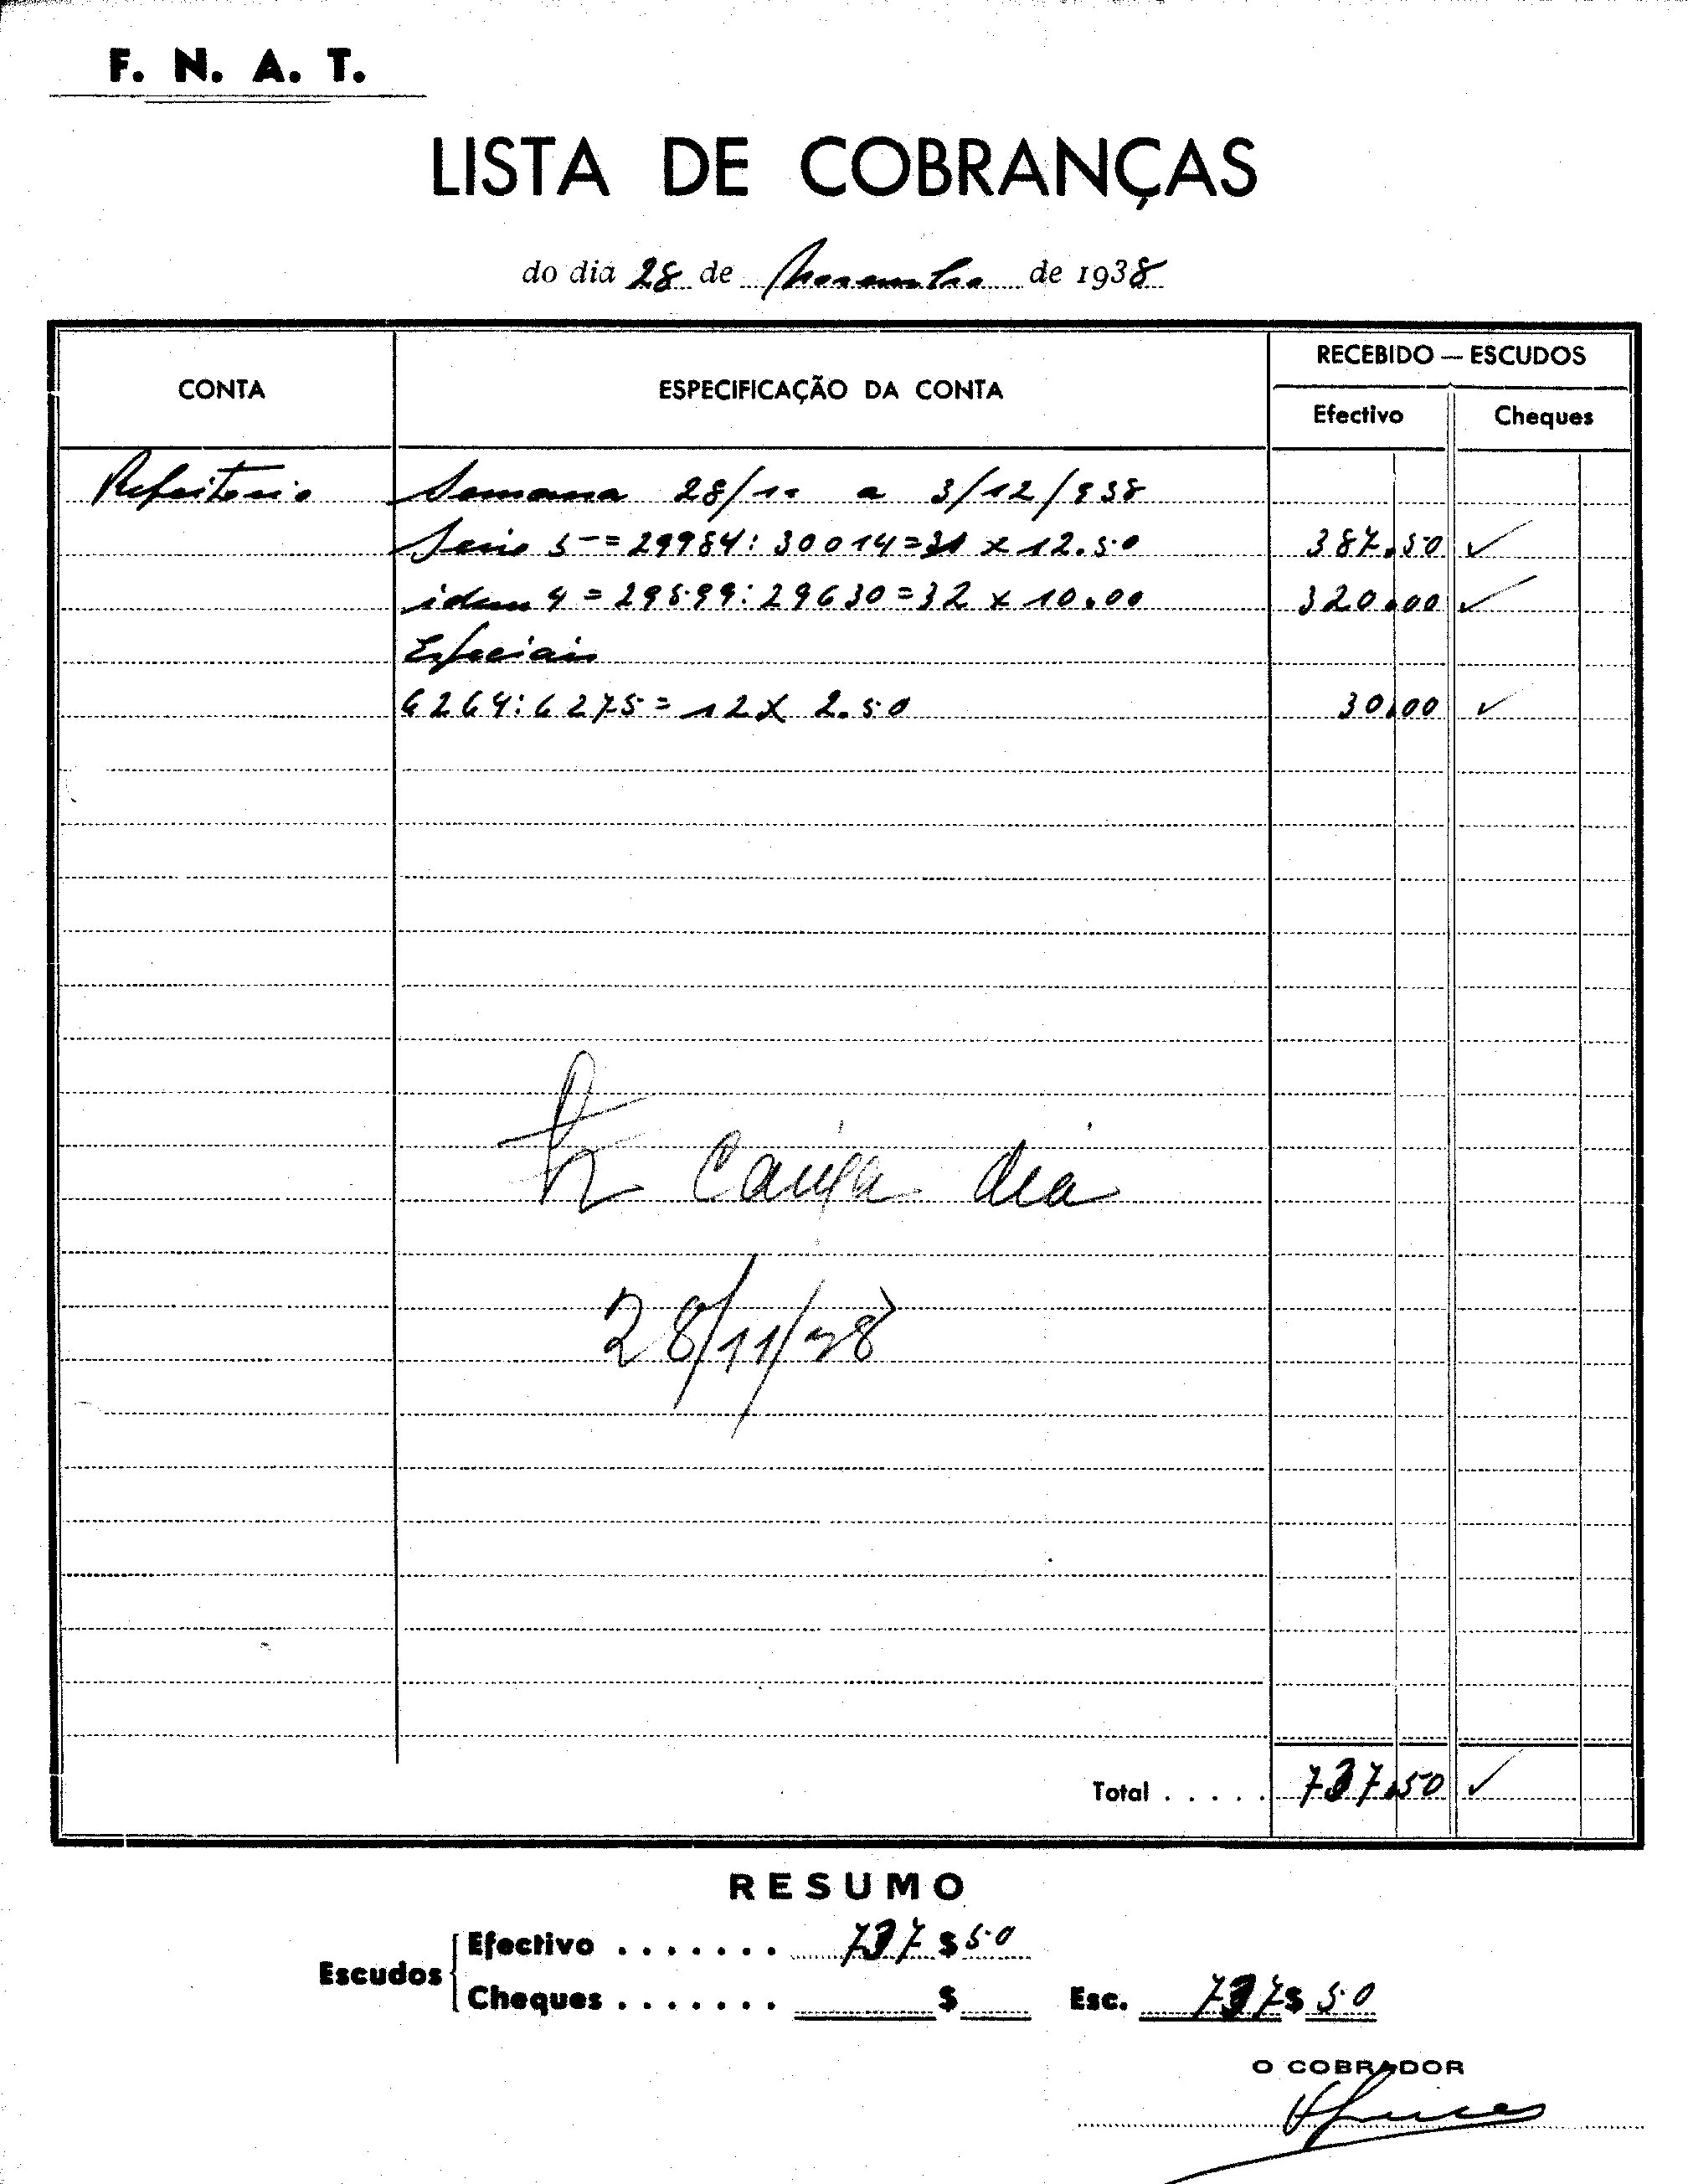 F. N. A. T.
LISTA DE COBRANÇAS
do dia 28 de Novembro de 1938
CONTA
ESPECIFICAÇÃO DA CONTA
RECEBIDO — ESCUDOS
Efectivo
Cheques
Refeitorio Semana 28/11 a 3/12/938
Serie 5 = 29984: 30014 = 31 x 12.50 387.50 ✓
idem 4 = 29599: 29630 = 32 x 10.00 320.00 ✓
Especiais
6264: 6275 = 12 x 2.50 30.00 ✓
Caixa dia
28/11/38
Total . . . . . 737.50 ✓
RESUMO
Escudos
Efectivo . . . . . . . 737 $ 50
Cheques . . . . . . . $ Esc. 737 $ 50
O COBRADOR